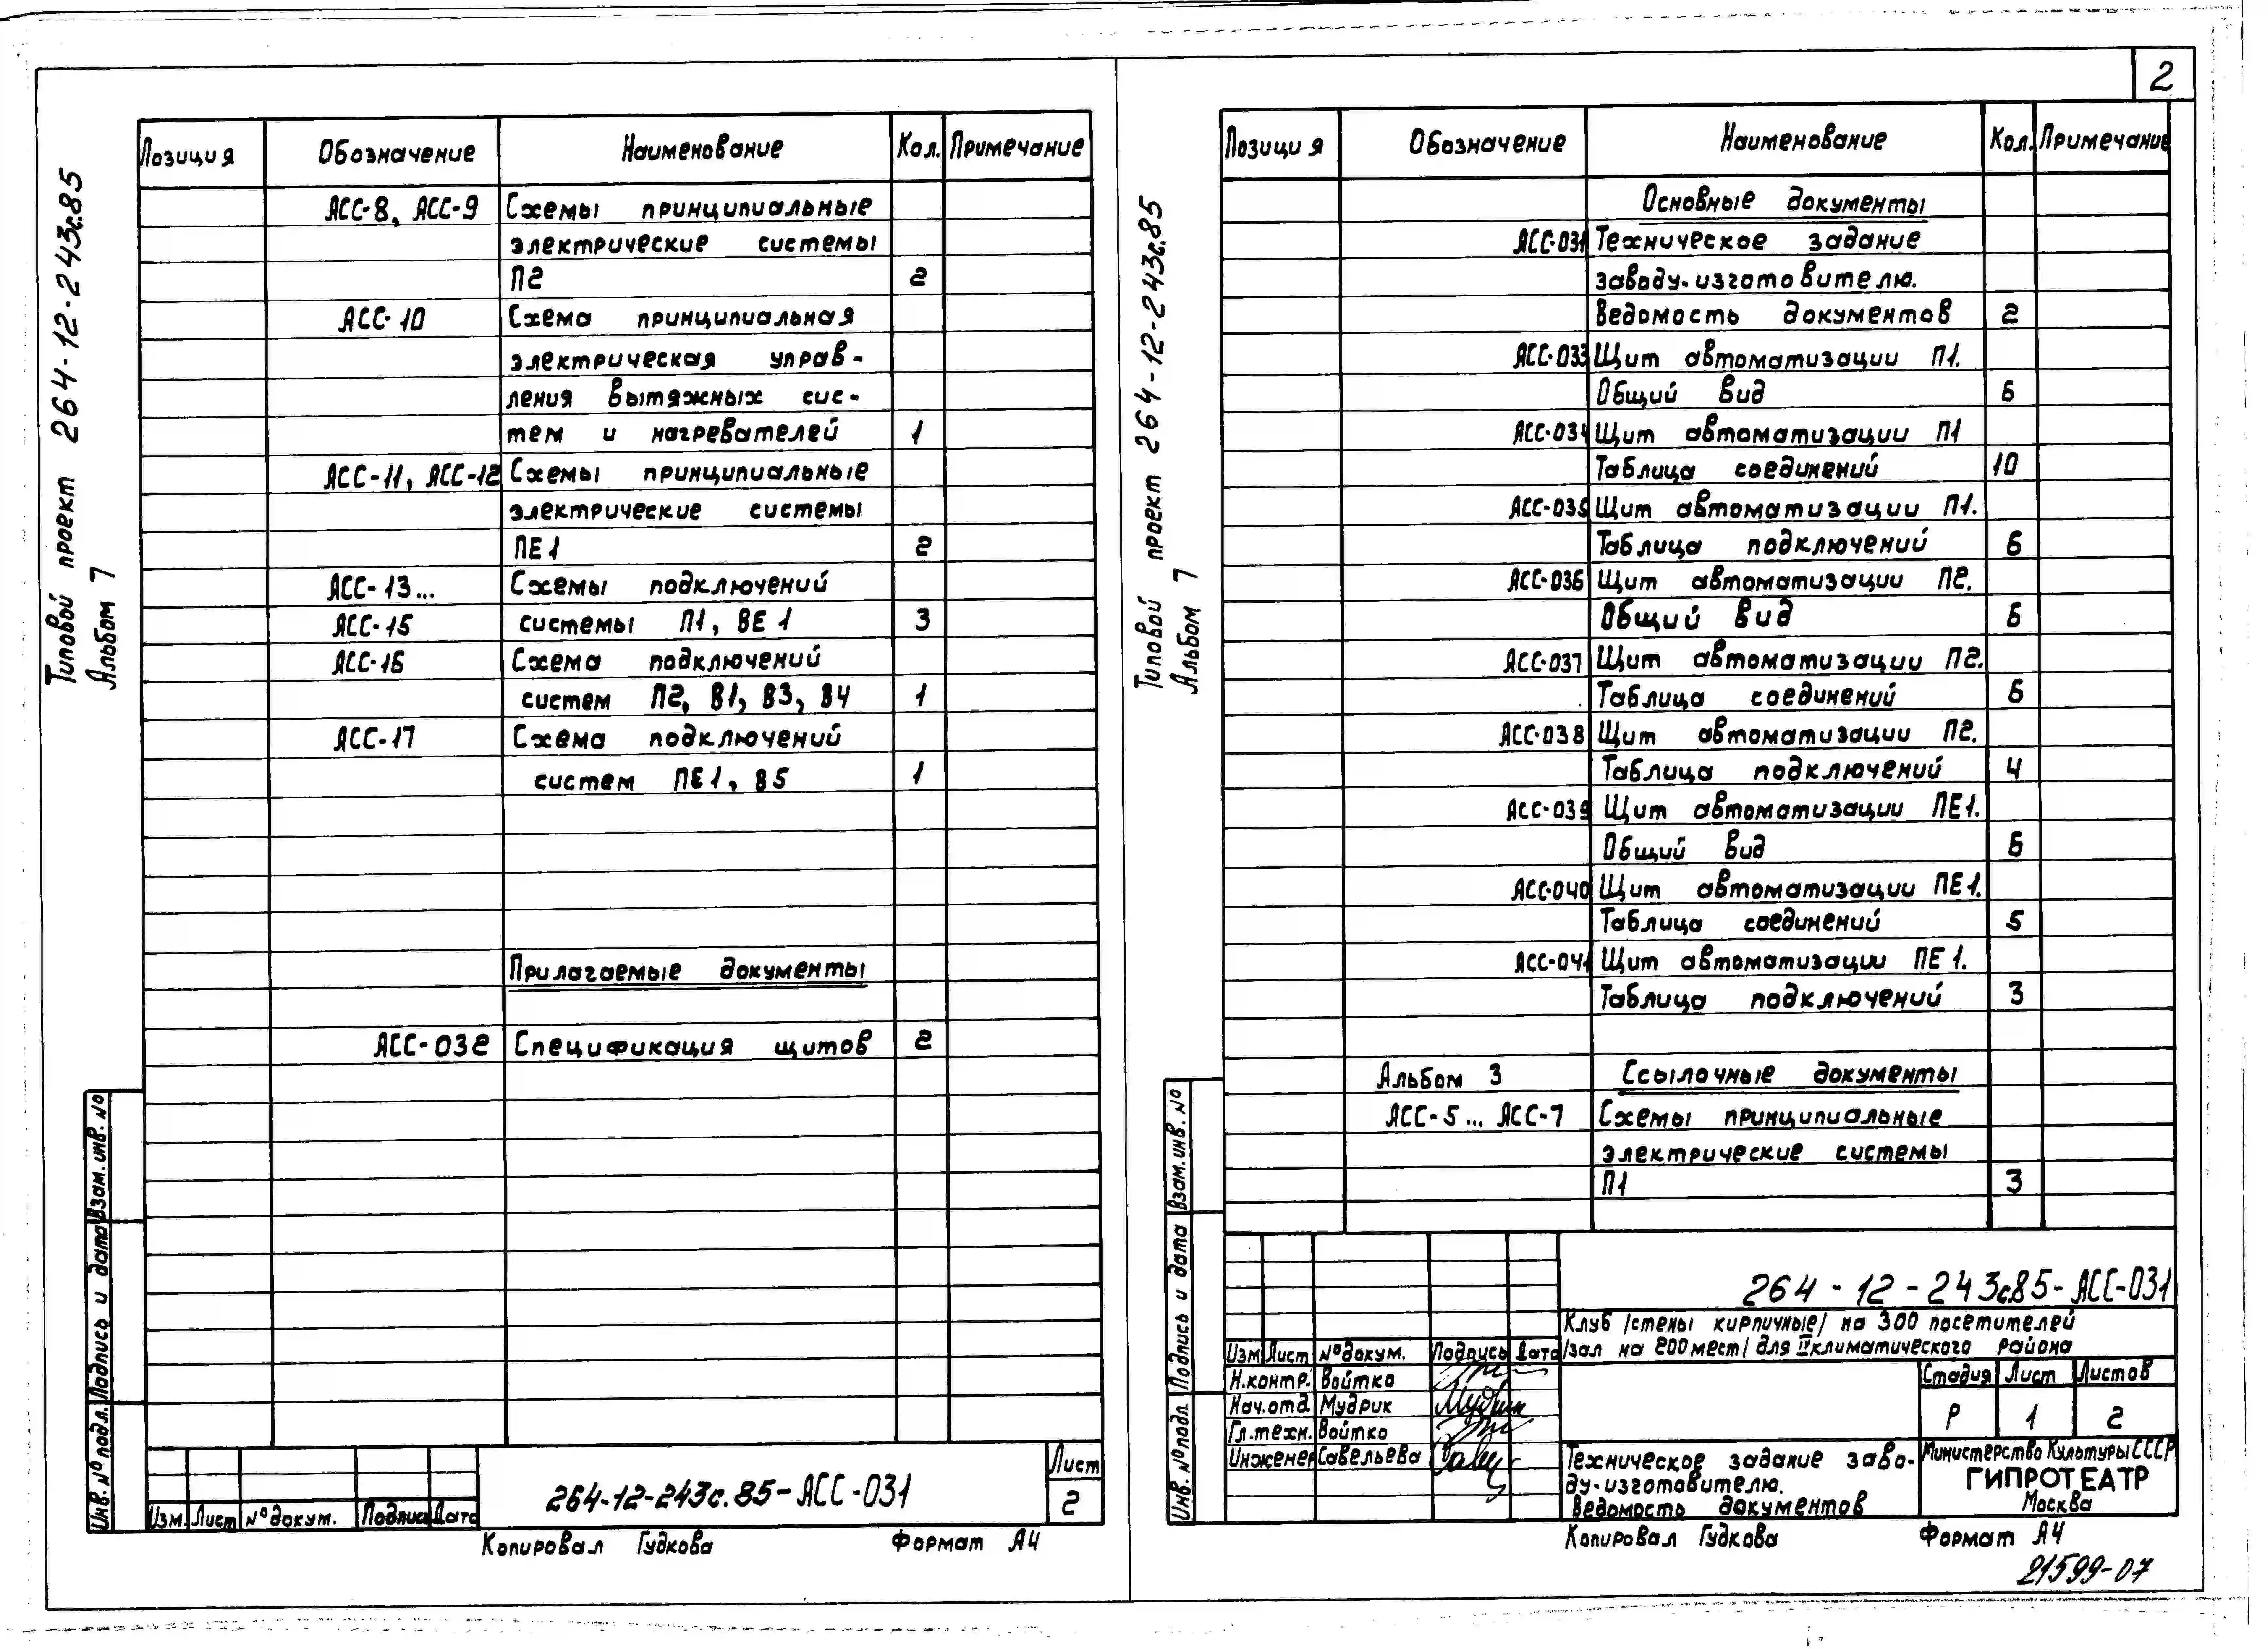 2
Типовой проект 264-12-243с.85
Альбом 7
Позиция Обозначение Наименование Кол. Примечание
АСС-8, АСС-9 Схемы принципиальные
электрические системы
П2 2
АСС-10 Схема принципиальная
электрическая управ-
ления вытяжных сис-
тем и нагревателей 1
АСС-11, АСС-12 Схемы принципиальные
электрические системы
ПЕ1 2
АСС-13... Схемы подключений
АСС-15 системы П1, ВЕ1 3
АСС-16 Схема подключений
систем П2, В1, В3, В4 1
АСС-17 Схема подключений
систем ПЕ1, В5 1
Прилагаемые документы
АСС-032 Спецификация щитов 2
Инв. № подл. Подпись и дата Взам. инв. №
Изм. Лист № докум. Подпись Дата
264-12-243с.85-АСС-031
Лист
2
Копировал Гудкова Формат А4
Типовой проект 264-12-243с.85
Альбом 7
Позиция Обозначение Наименование Кол. Примечание
Основные документы
АСС-031 Техническое задание
заводу-изготовителю.
Ведомость документов 2
АСС-033 Щит автоматизации П1.
Общий вид 6
АСС-034 Щит автоматизации П1
Таблица соединений 10
АСС-035 Щит автоматизации П1.
Таблица подключений 6
АСС-036 Щит автоматизации П2.
Общий вид 6
АСС-037 Щит автоматизации П2.
Таблица соединений 6
АСС-038 Щит автоматизации П2.
Таблица подключений 4
АСС-039 Щит автоматизации ПЕ1.
Общий вид 6
АСС-040 Щит автоматизации ПЕ1.
Таблица соединений 5
АСС-041 Щит автоматизации ПЕ1.
Таблица подключений 3
Альбом 3 Ссылочные документы
АСС-5... АСС-7 Схемы принципиальные
электрические системы
П1 3
Инв. № подл. Подпись и дата Взам. инв. №
264-12-243с.85-АСС-031
Клуб /стены кирпичные/ на 300 посетителей
/зал на 200 мест/ для II климатического района
Изм Лист № докум. Подпись Дата
Н.контр. Войтко
Нач.отд. Мудрик
Гл.техн. Войтко
Инженер Савельева
Стадия Лист Листов
Р 1 2
Техническое задание заво-
ду-изготовителю.
Ведомость документов
Министерство Культуры СССР
ГИПРОТЕАТР
Москва
Копировал Гудкова Формат А4
21599-07